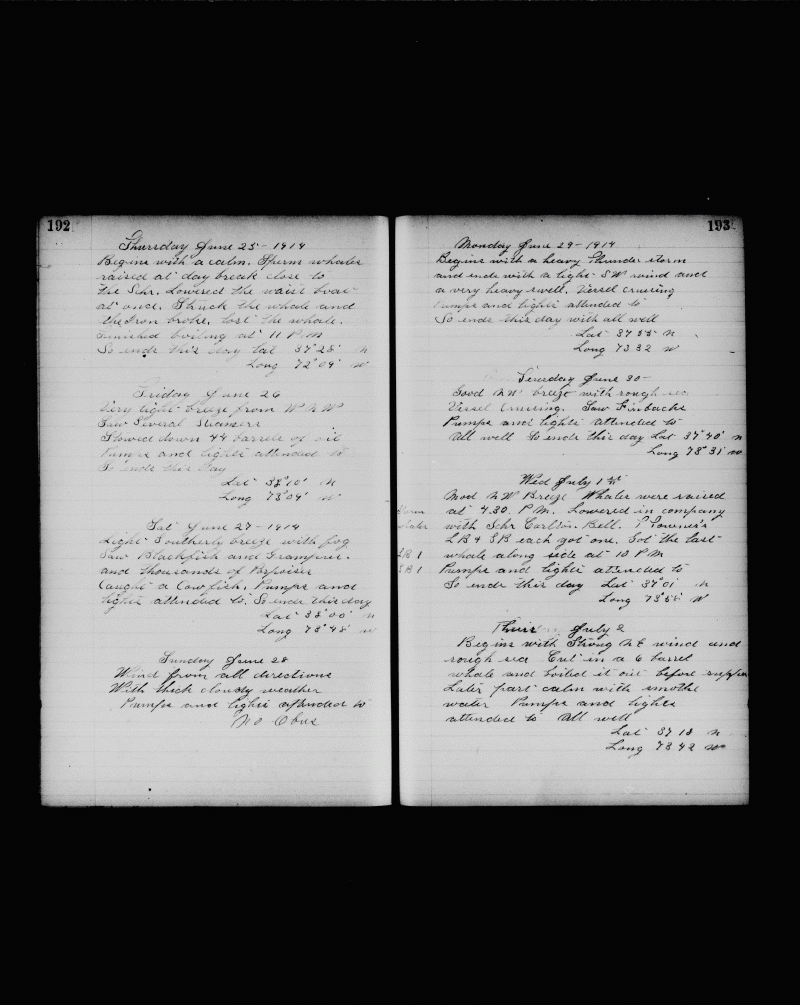 192
Thursday June 25 - 1914
Begins with a calm. Sperm whales
raised at day break close to
the Schr. Lowered the waist boat
at once. Struck the whale and
the Iron broke, lost the whale.
Finished boiling at 11 P.M.
So ends this day Lat 37° 28' N
Long 72° 09' W
Friday June 26
Very light breeze from W N W
Saw Several Steamers
Stowed down 44 barrels of oil
Pumps and lights attended to
So ends this Day
Lat 38° 10' N
Long 73° 04' W
Sat June 27 - 1914
Light Southerly breeze with fog
Saw Blackfish and Grampuses.
and thousands of Porpoises
Caught a Cowfish. Pumps and
lights attended to. So ends this day
Lat 38° 00' N
Long 73° 48' W
Sunday June 28
Wind from all directions
With thick cloudy weather
Pumps and lights attended to
No Obns
193
Monday June 29 - 1914
Begins with a heavy Thunder storm
and ends with a light SW wind and
a very heavy swell. Vessel cruising
Pumps and lights attended to
So ends this day with all well
Lat 37 55 N
Long 73 32 W
Tuesday June 30 -
Good NW breeze with rough sea
Vessel Cruising. Saw Finbacks
Pumps and lights attended to
All well So ends this day Lat 37° 40' N
Long 73° 31' W
Wed July 1st
Mod NW Breeze Whales were raised
at 4.30. P.M. Lowered in company
with Schr Carleton Bell.
LB & SB each got one. Got the last
whale along side at 10 PM
Pumps and lights attended to
So ends this day Lat 37° 01' N
Long 73° 56' W
Sperm
whales
LB 1
SB 1
Thurs July 2
Begins with Strong NE wind and
rough sea Cut in a 6 barrel
whale and boiled it out before supper
Later part calm with smothe
water Pumps and lights
attended to All well
Lat 37 18 N
Long 73 42 W